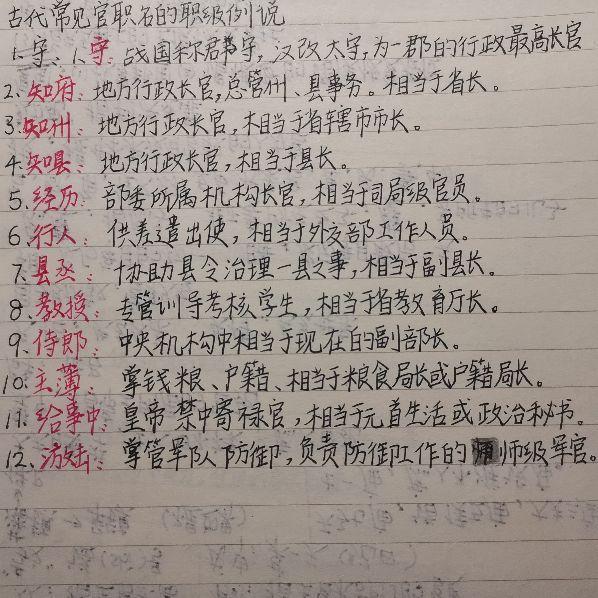 古代常见官职名的职级例说
1.守、1.守：战国称郡守，汉改太守，为一郡的行政最高长官
2.知府：地方行政长官，总管州、县事务。相当于省长。
3.知州：地方行政长官，相当于省辖市市长。
4.知县：地方行政长官，相当于县长。
5.经历：部委所属机构长官，相当于司局级官员。
6.行人：供差遣出使，相当于外交部工作人员。
7.县丞：协助县令治理一县之事，相当于副县长。
8.教授：专管训导考核学生，相当于省教育厅长。
9.侍郎：中央机构中相当于现在的副部长。
10.主薄：掌钱粮、户籍、相当于粮食局长或户籍局长。
11.给事中：皇帝禁中寄禄官，相当于元首生活或政治秘书。
12.游击：掌管军队防御，负责防御工作的师级军官。